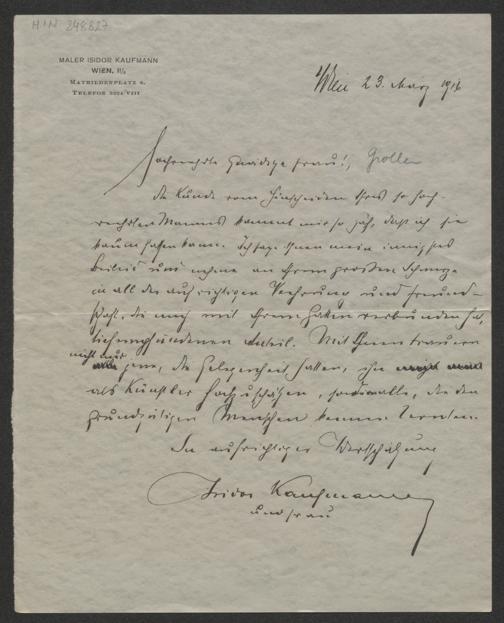 H.I.N. 248.627
MALER ISIDOR KAUFMANN
WIEN, II/2
MATHILDENPLATZ 4.
TELEFON 2024/VIII
Wien 23. März 1916
Hochverehrte Gnädige Frau!, Groller
die Kunde vom Hinscheiden Ihres so hoch-
verehrten Mannes kommt mir so jäh, daß ich sie
kaum fassen kann. Ich sage Ihnen mein innigstes
Beileid und nehme an Ihrem großen Schmerze
in all der aufrichtigen Verehrung und Freund-
schaft, die mich mit Ihrem Gatten verbunden hat,
tiefempfundenen Anteil. Mit Ihnen trauern
nicht nur jene, die Gelegenheit hatten, ihn
als Künstler hochzuschätzen, sondern alle, die den
grundgütigen Menschen kennen lernten.
In aufrichtiger Wertschätzung
Isidor Kaufmann
und Frau